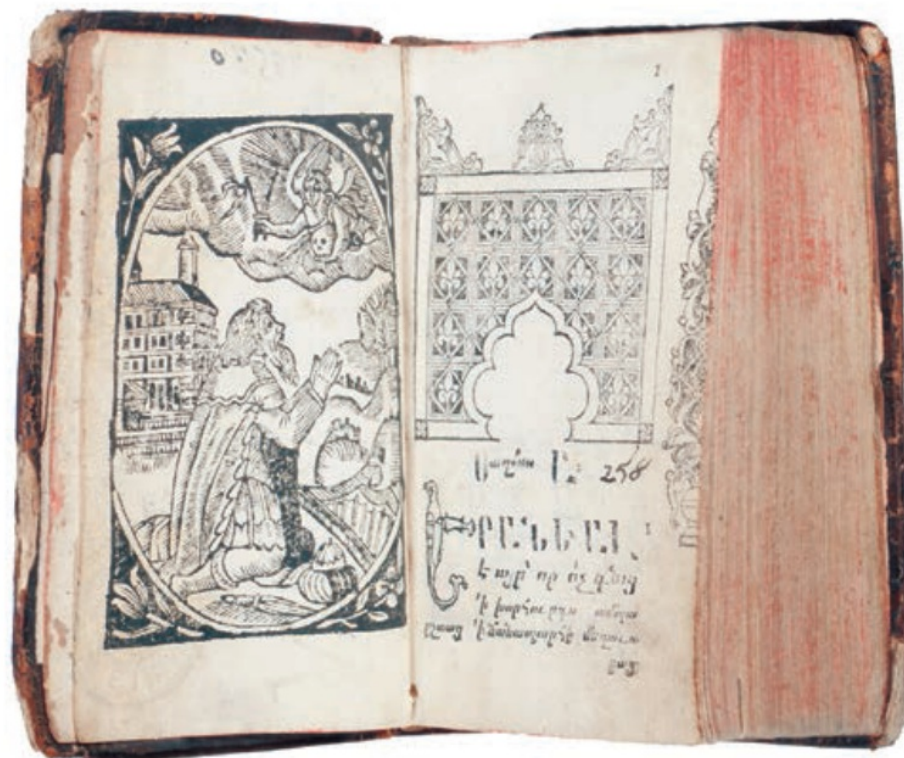 1
Սաղմոս Ա: 258
ԵՐԱՆԵԱԼ
է այր՝ որ ոչ գնաց
՚ի խորհուրդս ամպա
րշտաց ՚ի ճանապարհի մեղաւո
րաց